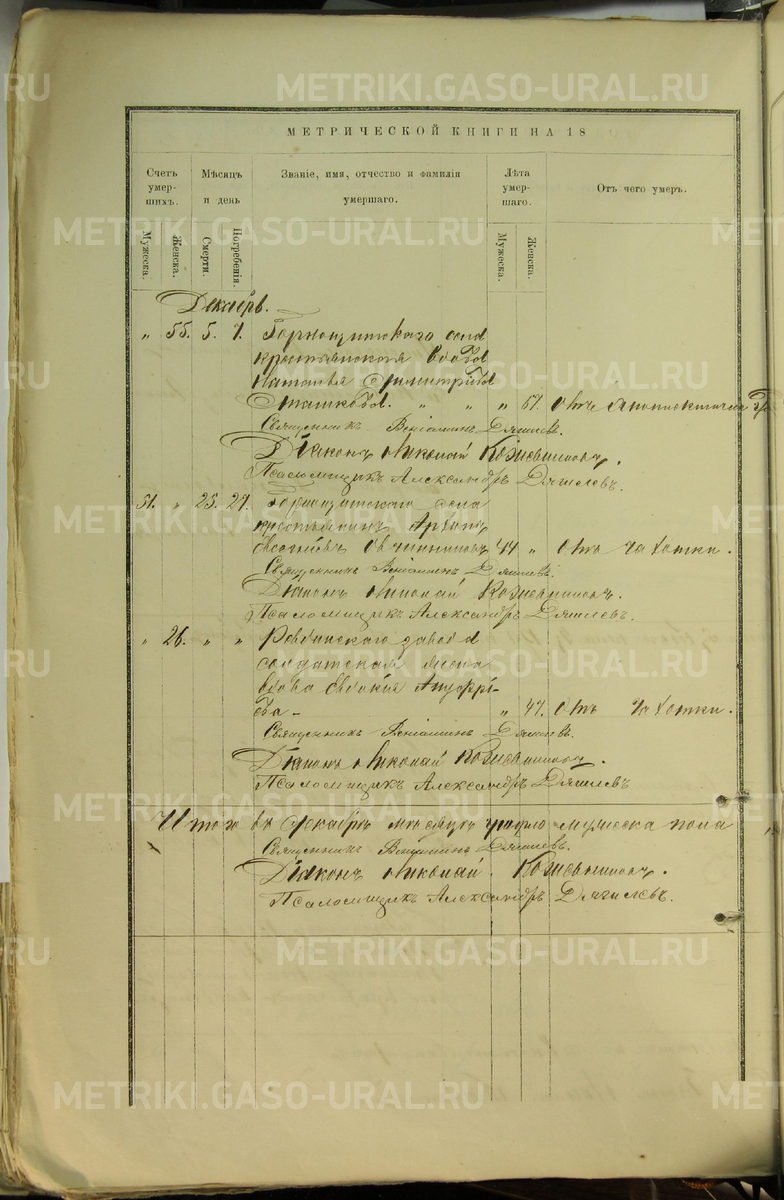 METRIKI.GASO-URAL.RU
МЕТРИЧЕСКОЙ КНИГИ НА 18
Счетъ умер-шихъ.
Мѣсяцъ и день
Званіе, имя, отчество и фамилія умершаго.
Лѣта умер-шаго.
Отъ чего умеръ.
Мужеска.
Женска.
Смерти.
Погребенія.
Мужеска.
Женска.
Декабрь.
„ 55. 5. 7. Горнощитскаго села
крестьянская вдова
Наталья Димитріева
„ „ „ 67. Отъ
Священникъ Веніаминъ Дягилевъ.
Діаконъ Николай Кожевниковъ.
Псаломщикъ Александръ Дягилевъ.
51. „ 25. 27. Горнощитскаго села
крестьянинъ Архипъ
Овчинниковъ 44 „ Отъ чахотки.
Священникъ Веніаминъ Дягилевъ.
Діаконъ Николай Кожевниковъ.
Псаломщикъ Александръ Дягилевъ.
„ 26. „ „ Ревдинскаго завода
солдатская жена
вдова Евдокія Ануфрі-
ева - „ 47. Отъ чахотки.
Священникъ Веніаминъ Дягилевъ.
Діаконъ Николай Кожевниковъ.
Псаломщикъ Александръ Дягилевъ
Итого въ Декабрѣ мѣсяцѣ умерло мужеска пола
Священникъ Веніаминъ Дягилевъ.
Діаконъ Николай Кожевниковъ.
Псаломщикъ Александръ Дягилевъ.